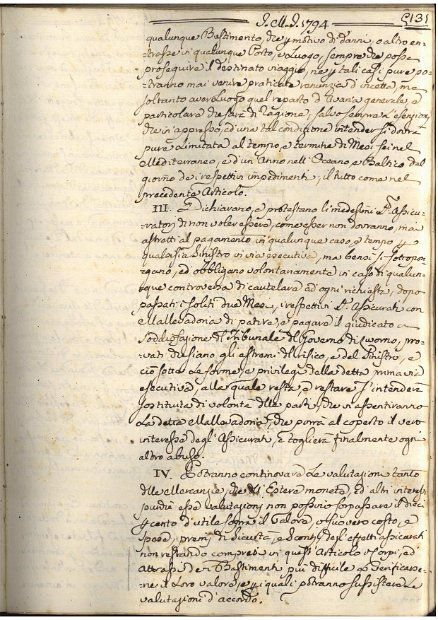 J. M. J. 1794
131
qualunque Bastimento, che per motivo di danni, o altro en
trasse in qualunque Porto, e Luogo, sempre che possa
proseguire il destinato viaggio, ne in tali casi pure po
tranno mai venire praticate renunzie di ricetta, ma
soltanto aver Luogo quel reparto d'Avaria generale, o
particolare che sarà di Ragione, salvo
che in appresso, ed una tal condizione intendersi debba
pure limitata al tempo, e termine di Mesi sei nel
Mediterraneo, e d'un Anno nell'Oceano, e Baltico dal
giorno de' respettivi impedimenti, il tutto come nel
precedente Articolo.
III. Dichiarano, e protestano i medesimi SS.ri Assicu
ratori di non voler essere, come esser non dovranno, mai
astretti al pagamento in qualunque caso, e tempo, e
qualsisia sinistro in via esecutiva, ma bensì si sottopon
gono, ed obbligano volontariamente in caso di qualun
que controversia di cautelare ad ogni richiesta, dopo
passati i soliti due Mesi, i respettivi SS.ri Assicurati con
Mallevadoria di patire, e pagare il giudicato a
soddisfazione del Tribunale del Governo di Livorno, pro
vati che siano gli estremi del risico, e del sinistro, e
ciò sotto le forme, e privilegi della detta primaria
esecutiva, alle quale resta, e restare s'intende
sostituita di volontà delle parti, che vi assentiranno
La detta Mallevadoria, che porrà al coperto il vero
interesse degl'Assicurati, e toglierà finalmente ogni
altro abuso.
IV. Potranno continovare Le valutazioni tanto
delle Mercanzie, che di Estera moneta, ed altri interessi
purchè esse valutazioni non possino sorpassare il dieci
per cento di utile sopra il Valore, o sia vero costo, e
spese, premj di sicurtà, e sconti degl'effetti assicurati
non restando compresi in questo Articolo i Corpi, ed
attrassi de' Bastimenti più difficile a verificarse
ne il Loro valore, e pei quali potranno sussistere Le
valutazioni d'accordo.